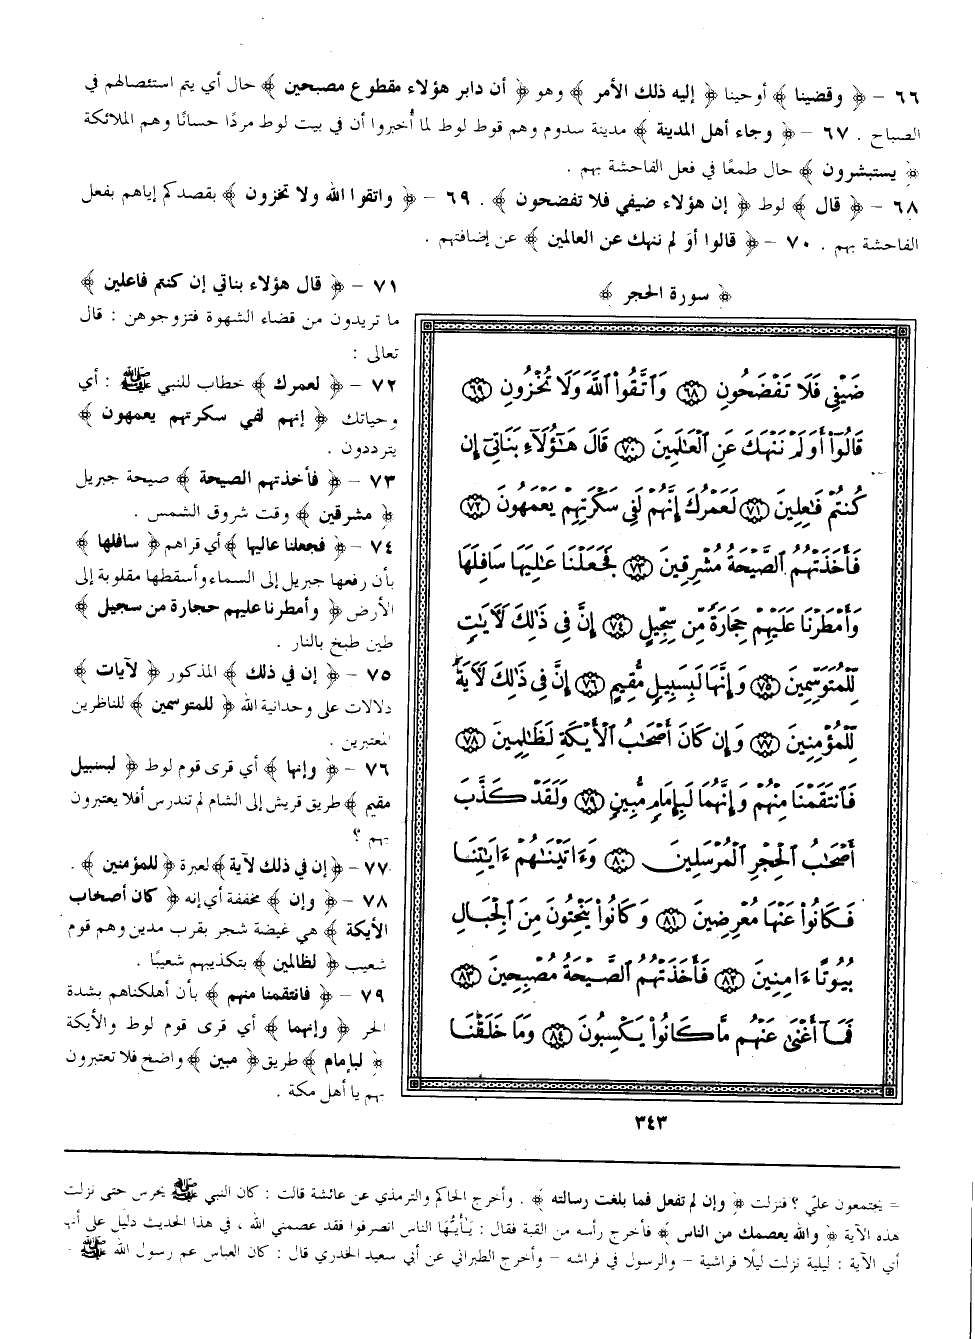 ٦٦ - ﴿ وقضينا ﴾ أوحينا ﴿ إليه ذلك الأمر ﴾ وهو ﴿ أن دابر هؤلاء مقطوع مصبحين ﴾ حال أي يتم استئصالهم في
الصباح . ٦٧ - ﴿ وجاء أهل المدينة ﴾ مدينة سدوم وهم قوط لوط لما أُخبروا أن في بيت لوط مردًا حسانًا وهم الملائكة
﴿ يستبشرون ﴾ حال طمعًا في فعل الفاحشة بهم .
٦٨ - ﴿ قال ﴾ لوط ﴿ إن هؤلاء ضيفي فلا تفضحون ﴾ . ٦٩ - ﴿ واتقوا الله ولا تخزون ﴾ بقصدكم إياهم بفعل
الفاحشة بهم . ٧٠ - ﴿ قالوا أوَ لم ننهك عن العالمين ﴾ عن إضافتهم .
﴿ سورة الحجر ﴾
ضَيْفِي فَلَا تَفْضَحُونِ ٦٨ وَٱتَّقُوا۟ ٱللَّهَ وَلَا تُخْزُونِ ٦٩
قَالُوٓا۟ أَوَلَمْ نَنْهَكَ عَنِ ٱلْعَـٰلَمِينَ ٧٠ قَالَ هَـٰٓؤُلَآءِ بَنَاتِىٓ إِن
كُنتُمْ فَـٰعِلِينَ ٧١ لَعَمْرُكَ إِنَّهُمْ لَفِى سَكْرَتِهِمْ يَعْمَهُونَ ٧٢
فَأَخَذَتْهُمُ ٱلصَّيْحَةُ مُشْرِقِينَ ٧٣ فَجَعَلْنَا عَـٰلِيَهَا سَافِلَهَا
وَأَمْطَرْنَا عَلَيْهِمْ حِجَارَةً مِّن سِجِّيلٍ ٧٤ إِنَّ فِى ذَٰلِكَ لَـَٔايَـٰتٍ
لِّلْمُتَوَسِّمِينَ ٧٥ وَإِنَّهَا لَبِسَبِيلٍ مُّقِيمٍ ٧٦ إِنَّ فِى ذَٰلِكَ لَـَٔايَةً
لِّلْمُؤْمِنِينَ ٧٧ وَإِن كَانَ أَصْحَـٰبُ ٱلْأَيْكَةِ لَظَـٰلِمِينَ ٧٨
فَٱنتَقَمْنَا مِنْهُمْ وَإِنَّهُمَا لَبِإِمَامٍ مُّبِينٍ ٧٩ وَلَقَدْ كَذَّبَ
أَصْحَـٰبُ ٱلْحِجْرِ ٱلْمُرْسَلِينَ ٨٠ وَءَاتَيْنَـٰهُمْ ءَايَـٰتِنَا
فَكَانُوا۟ عَنْهَا مُعْرِضِينَ ٨١ وَكَانُوا۟ يَنْحِتُونَ مِنَ ٱلْجِبَالِ
بُيُوتًا ءَامِنِينَ ٨٢ فَأَخَذَتْهُمُ ٱلصَّيْحَةُ مُصْبِحِينَ ٨٣
فَمَآ أَغْنَىٰ عَنْهُم مَّا كَانُوا۟ يَكْسِبُونَ ٨٤ وَمَا خَلَقْنَا
٣٤٣
٧١ - ﴿ قال هؤلاء بناتي إن كنتم فاعلين ﴾
ما تريدون من قضاء الشهوة فتزوجوهن : قال
تعالى :
٧٢ - ﴿ لعمرك ﴾ خطاب للنبي ﷺ : أي
وحياتك ﴿ إنهم لفي سكرتهم يعمهون ﴾
يترددون .
٧٣ - ﴿ فأخذتهم الصيحة ﴾ صيحة جبريل
﴿ مشرقين ﴾ وقت شروق الشمس .
٧٤ - ﴿ فجعلنا عاليها ﴾ أي قراهم ﴿ سافلها ﴾
بأن رفعها جبريل إلى السماء وأسقطها مقلوبة إلى
الأرض ﴿ وأمطرنا عليهم حجارة من سجيل ﴾
طين طبخ بالنار .
٧٥ - ﴿ إن في ذلك ﴾ المذكور ﴿ لآيات ﴾
دلالات على وحدانية الله ﴿ للمتوسمين ﴾ للناظرين
المعتبرين .
٧٦ - ﴿ وإنها ﴾ أي قرى قوم لوط ﴿ لبسبيل
مقيم ﴾ طريق قريش إلى الشام لم تندرس أفلا يعتبرون
بهم ؟
٧٧ - ﴿ إن في ذلك لآية ﴾ لعبرة ﴿ للمؤمنين ﴾ .
٧٨ - ﴿ وإن ﴾ مخففة أي إنه ﴿ كان أصحاب
الأيكة ﴾ هي غيضة شجر بقرب مدين وهم قوم
شعيب ﴿ لظالمين ﴾ بتكذيبهم شعيبًا .
٧٩ - ﴿ فانتقمنا منهم ﴾ بأن أهلكناهم بشدة
الحر ﴿ وإنهما ﴾ أي قرى قوم لوط والأيكة
﴿ لبإمام ﴾ طريق ﴿ مبين ﴾ واضح فلا تعتبرون
بهم يا أهل مكة .
= يجتمعون عليّ ؟ فنزلت ﴿ وإن لم تفعل فما بلغت رسالته ﴾ . وأخرج الحاكم والترمذي عن عائشة قالت : كان النبي ﷺ يحرس حتى نزلت
هذه الآية ﴿ والله يعصمك من الناس ﴾ فأخرج رأسه من القبة فقال : يَأيُّهَا الناس انصرفوا فقد عصمني الله ، في هذا الحديث دليل على أنها
أي الآية : ليلية نزلت ليلًا فراشية - والرسول في فراشه - وأخرج الطبراني عن أبي سعيد الخدري قال : كان العباس عم رسول الله ﷺ .